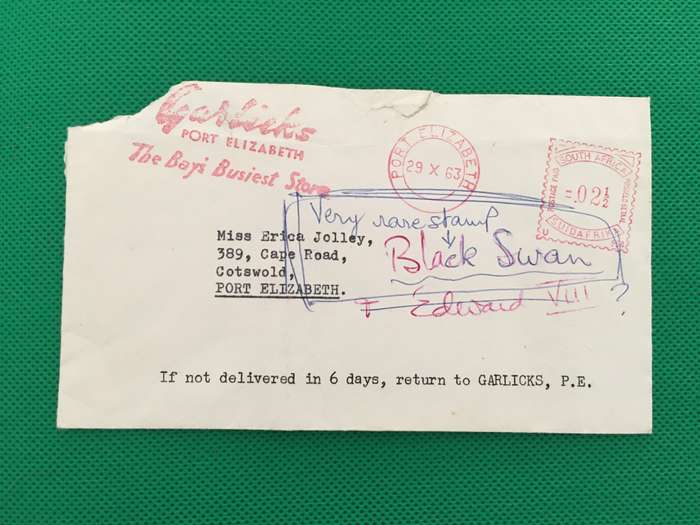 Garlicks
PORT ELIZABETH
The Bay's Busiest Store
PORT ELIZABETH
29 X 63
SOUTH AFRICA
POSTAGE PAID
=.02½
POSGELD BETAAL
SUIDAFRIKA
Very rare stamp
Black Swan
Edward VIII ?
Miss Erica Jolley,
389, Cape Road,
Cotswold,
PORT ELIZABETH.
If not delivered in 6 days, return to GARLICKS, P.E.